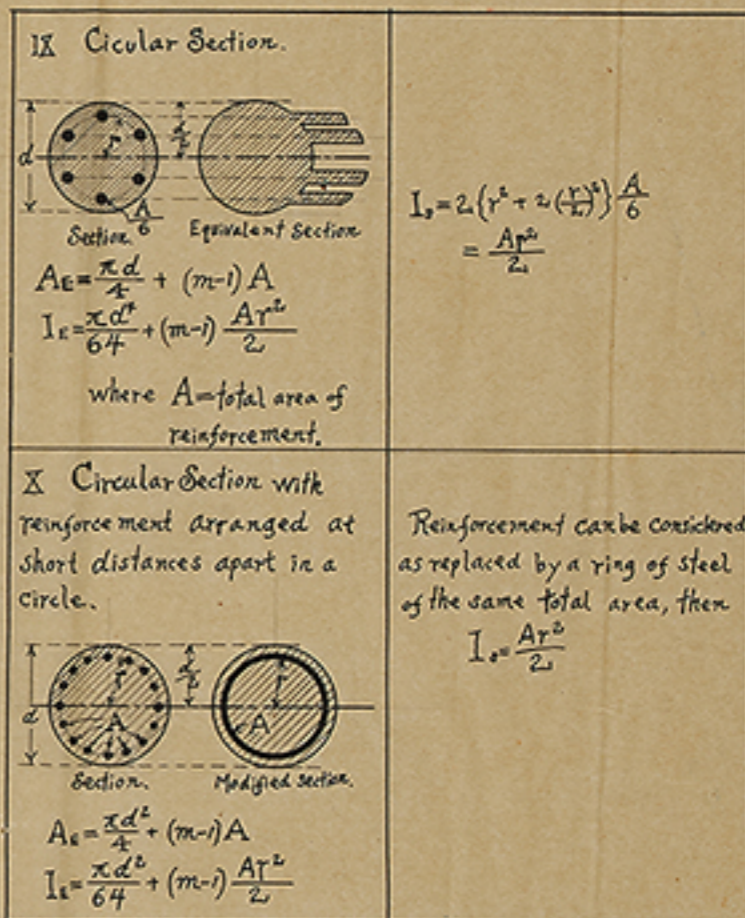 IX Cicular Section.
d
d/2
r
A/6
Section.
Equivalent Section
A_E = πd/4 + (m-1) A
I_E = πd⁴/64 + (m-1) Ar²/2
where A = total area of
reinforcement.
I_s = 2{r² + 2(r/2)²} A/6
= Ar²/2
X Circular Section with
reinforcement arranged at
short distances apart in a
circle.
d
r
A
d/2
r
A
Section.
Modified section.
A_E = πd²/4 + (m-1)A
I_E = πd²/64 + (m-1) Ar²/2
Reinforcement can be considered
as replaced by a ring of steel
of the same total area, then
I_s = Ar²/2